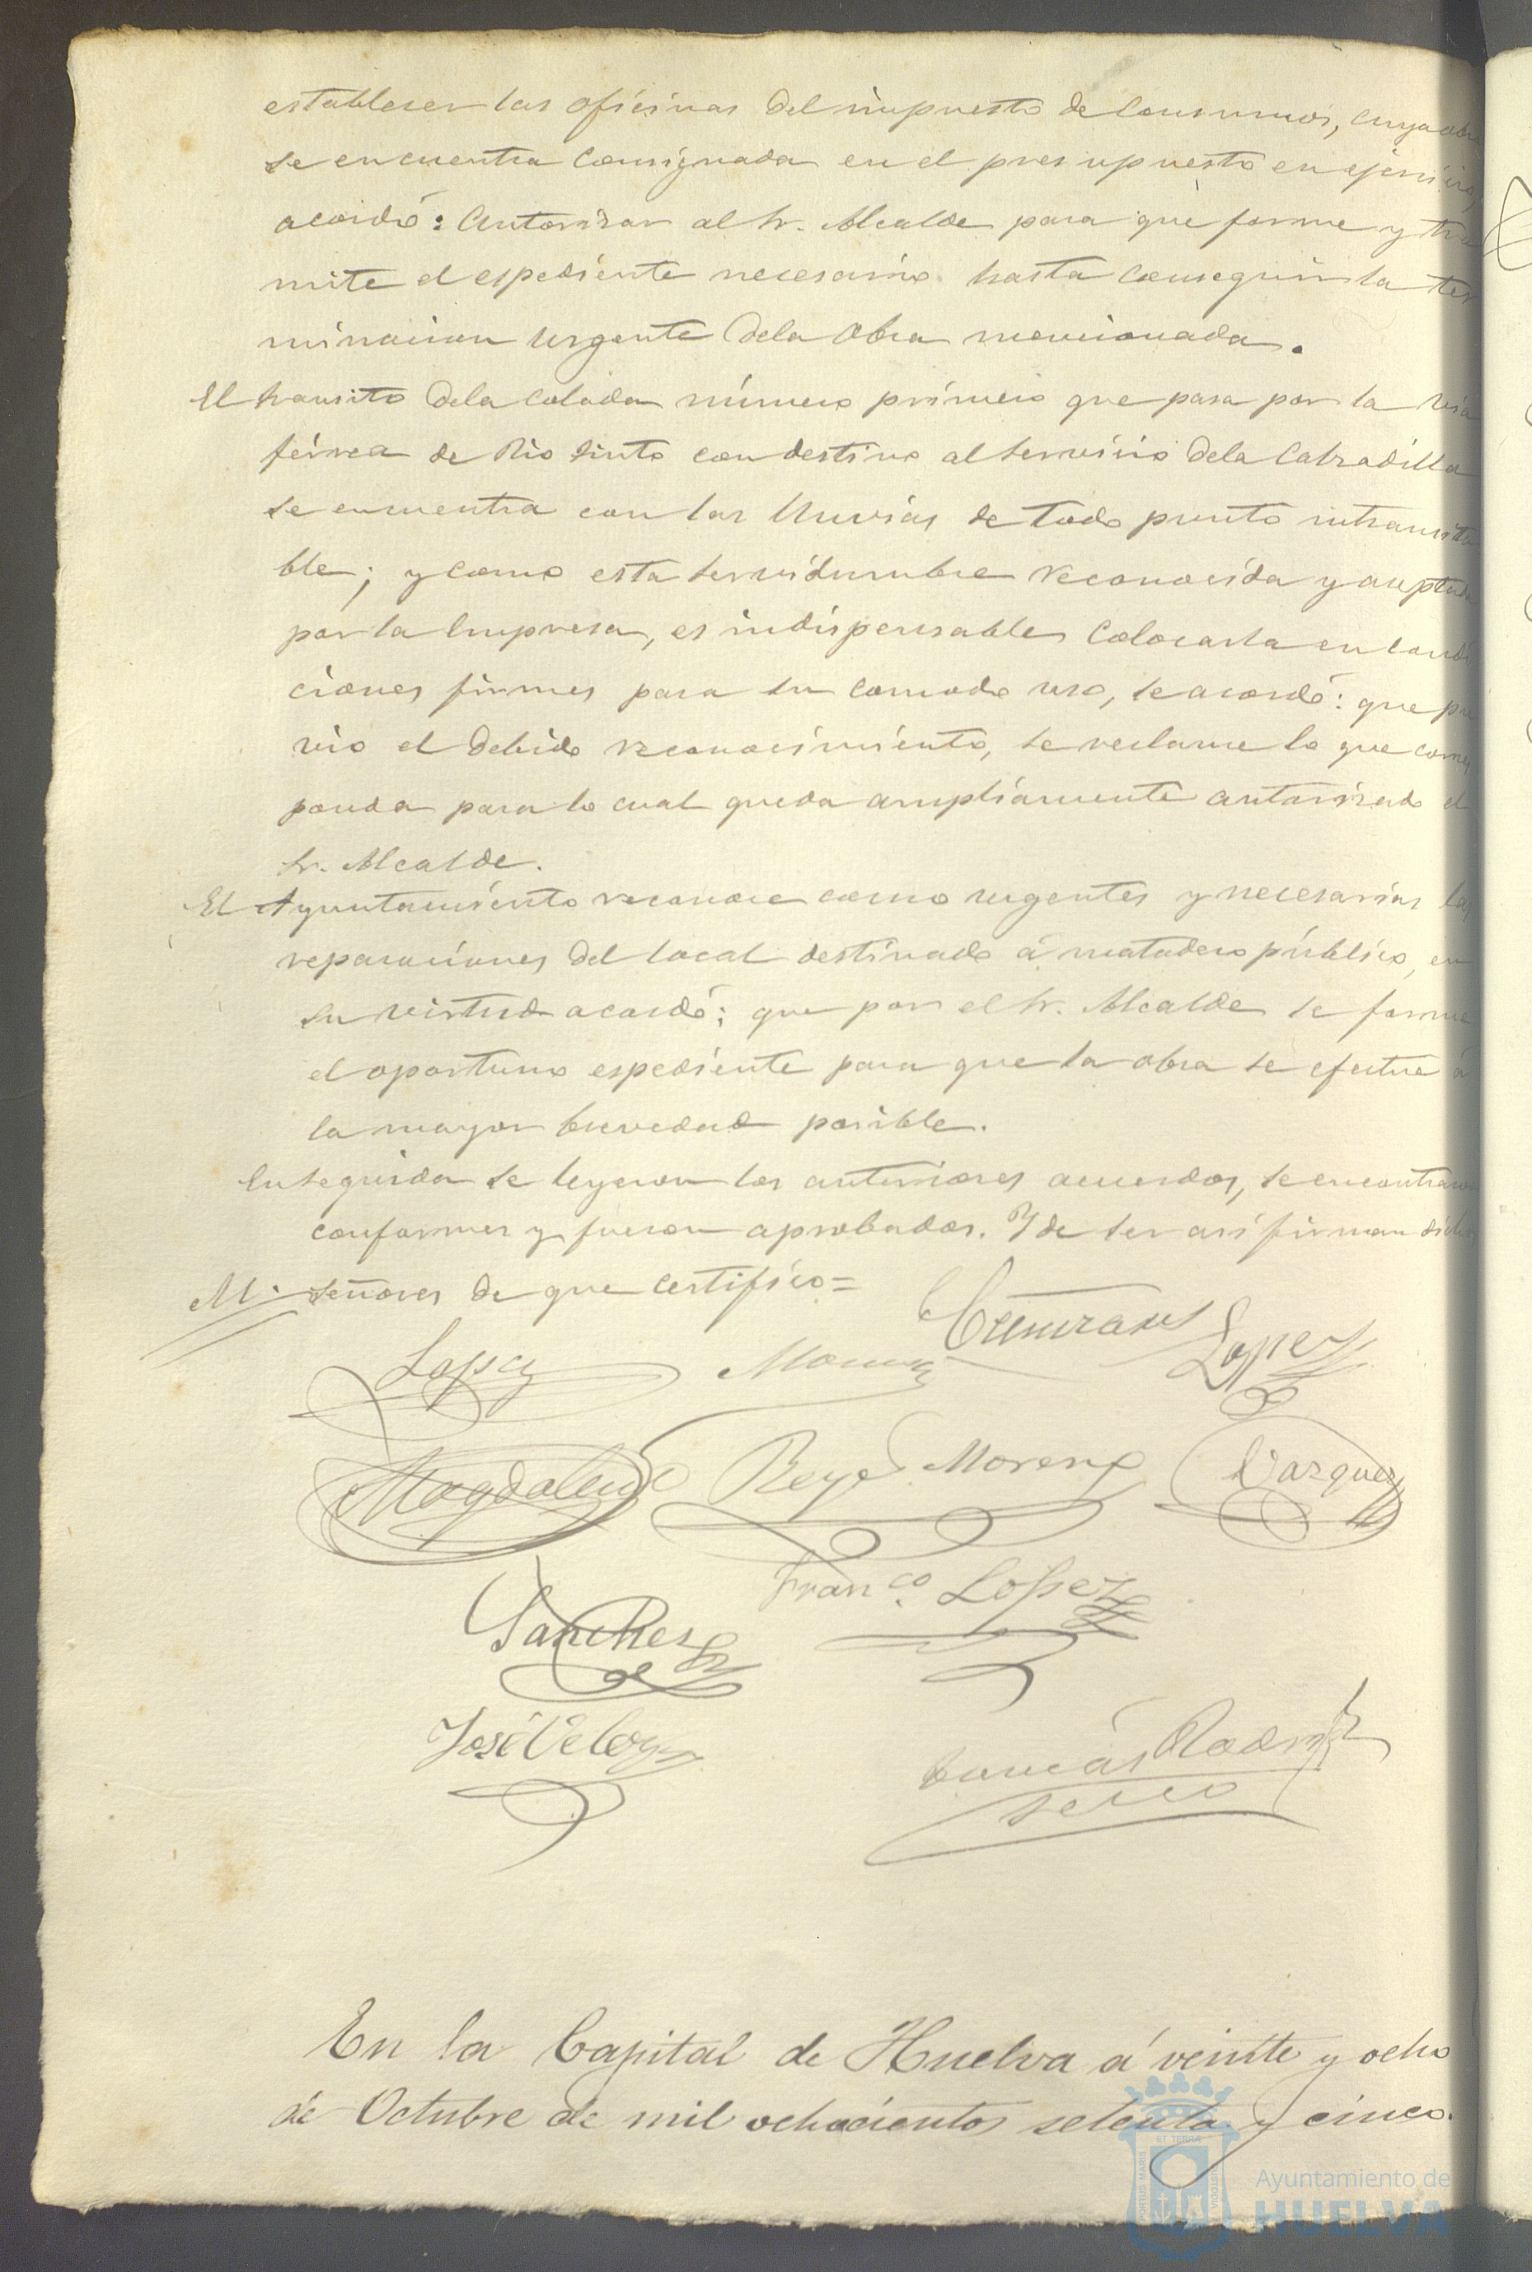 establecer las oficinas del impuesto de Consumos, cuya obra
se encuentra consignada en el presupuesto en ejercicio,
acordó: Autorizar al Sr. Alcalde para que forme y tra
mite el espediente necesario hasta conseguir la ter
minacion urgente dela obra mencionada.
El transito dela colada número primero que pasa por la via
ferrea de Rio tinto con destino al servicio dela Calzadilla
se encuentra con las lluvias de todo punto intransita
ble; y como esta servidumbre reconocida y aceptada
por la Empresa, es indispensable colocarla en condi
ciones firmes para su comodo uso, se acordó: que pre
vio el debido reconocimiento, se reclame lo que corres
ponda para lo cual queda ampliamente autorizado el
Sr. Alcalde.
El Ayuntamiento reconoce como urgentes y necesarias las
reparaciones del local destinado á matadero público, en
su virtud acordó; que por el Sr. Alcalde se forme
el oportuno espediente para que la obra se efectue á
la mayor brevedad posible.
Enseguida se leyeron los anteriores acuerdos, se encontraron
conformes y fueron aprobados. Y de ser asi firman dichos
señores de que certifico=
Lopez
Lopez
Magdalena Reyes Moreno Vazquez
Sanchez Franco. Lopez
José Velez
Tomás Rodrig
serio
En la Capital de Huelva á veinte y ocho
de Octubre de mil ochocientos setenta y cinco.
Ayuntamiento de
HUELVA